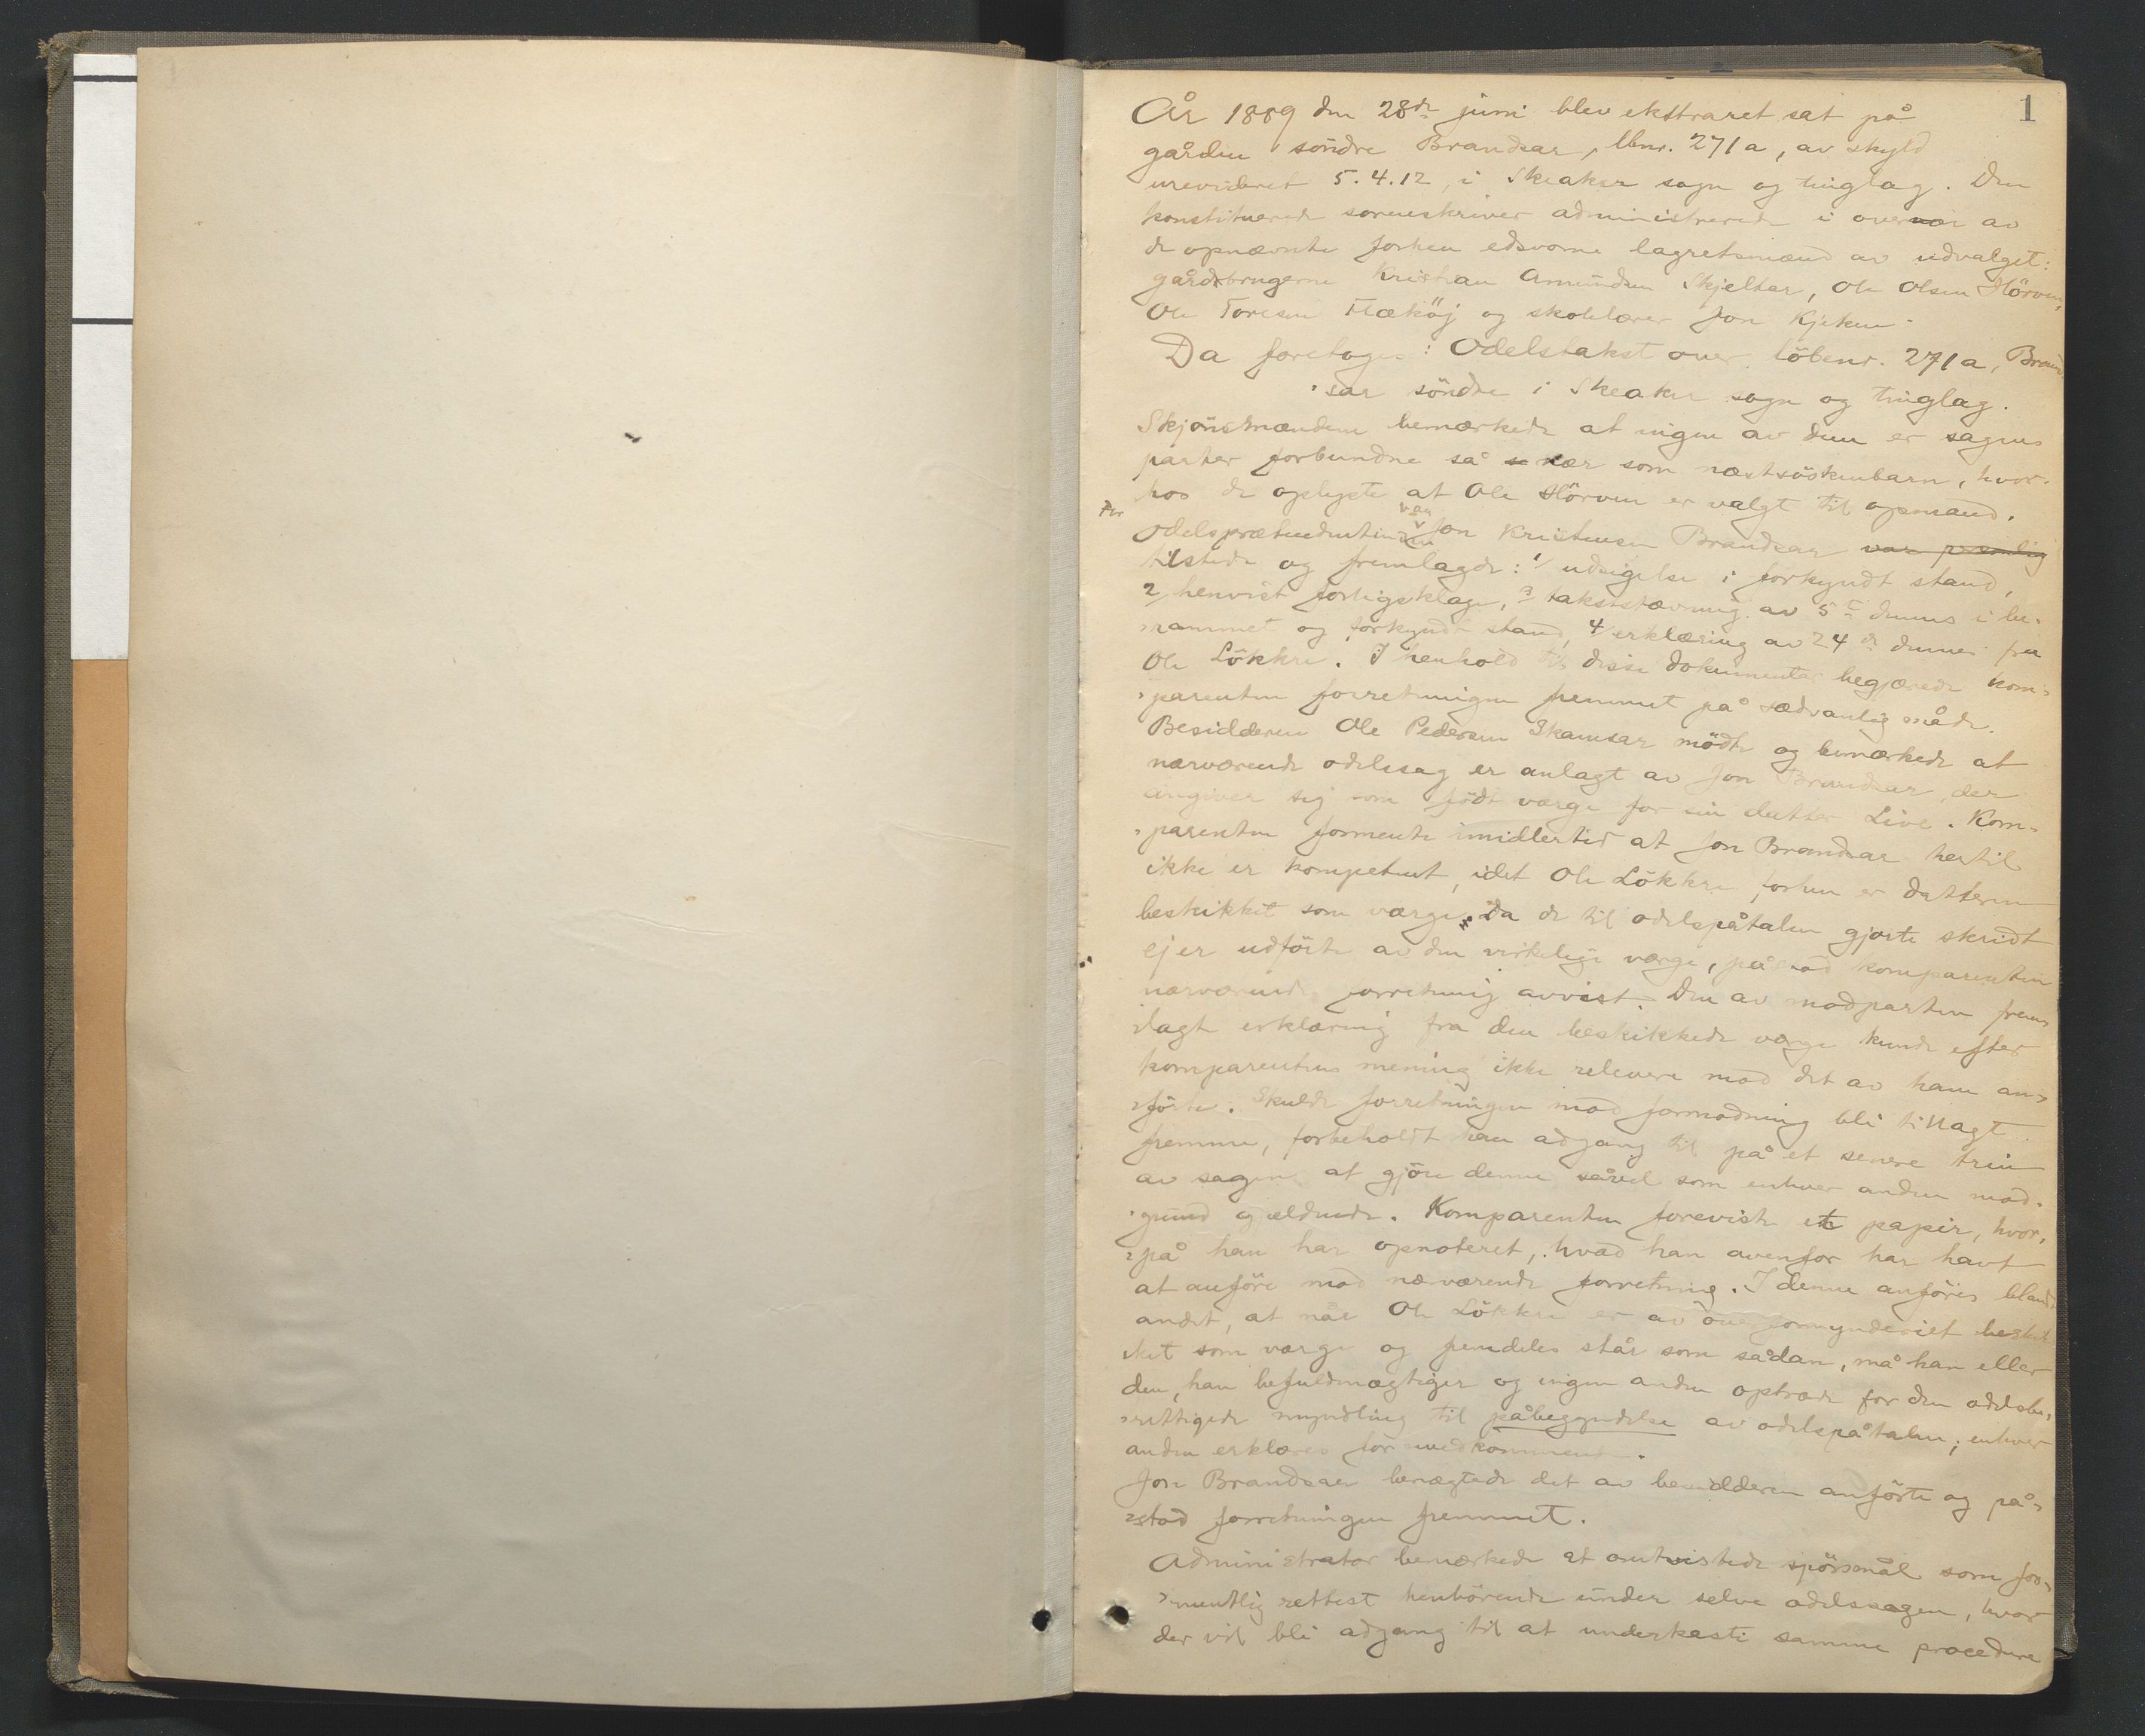 1
År 1889 den 28de juni blev ekstraret sat på
gården söndre Brandsar, lbnr. 271a, av skyld
urevideret 5.4.12, i Skeaker sogn og tinglag. Den
konstituerede sorenskriver administrerede i overvær av
de opnævnte forhen edsvorne lagretsmænd av udvalget:
gårdbrugerne Kristian Amundsen Skjelkar, Ole Olsen Hörven,
Ole Toresen Flækøj og skolelærer Jon Kjeken.
Da foretoges: Odelstakst over löbenr. 271a, Brand-
sar söndre i Skeaker sogn og tinglag.
Skjönsmændene bemærkede at ingen av dem er sagens
parter forbundne så nær som næstsöskenbarn, hvor-
hos de oplyste at Ole Hörven er valgt til opmand.
Odelsprætendentinden Jon Kristensen Brandsar var personlig
var
tilstede og fremlagde: 1/ udsigelse i forkyndt stand,
2/ henvist forligsklage, 3/ takststævning av 5te dennes i be-
rammet og forkyndt stand, 4/ erklæring av 24de dennes fra
Ole Lökkre. I henhold til disse dokumenter begjærede kom-
parenten forretningen fremmet på sædvanlig måde.
Besidderen Ole Pedersen Skamsar mödte og bemærkede at
nærværende odelssag er anlagt av Jon Brandsar, der
angiver sig som födt værge for sin datter Live. Kom-
parenten formente imidlertid at Jon Brandsar hertil
ikke er kompetent, idet Ole Lökkre forhen er datteren
beskikket som værge. Da de til odelspåtalen gjorte skridt
ej er udförte av den virkelige værge, påstod komparenten
nærværende forretning avvist. Den av modparten frem-
lagte erklæring fra den beskikkede værge kunde efter
komparentens mening ikke relevere mod det av ham an-
förte. Skulde forretningen mod formodning bli tillagt
fremme, forbeholdt han adgang til på et senere trin
av sagen at gjöre denne såvel som enhver anden mod-
grund gjældende. Komparenten foreviste et papir, hvor-
på han har opnoteret, hvad han ovenfor har havt
at anföre mod næværende forretning. I denne anföres blandt
andet, at når Ole Lökkre er av overformynderiet beskik-
ket som værge og fremdeles står som sådan, må han eller
den, han befuldmægtiger og ingen anden optræde for den odelsbe-
rettigede myndling til påbegyndelse av odelspåtalen; enhver
anden erklæres for uvedkommende.
Jon Brandsar benægtede det av besidderen anförte og på-
stod forretningen fremmet.
Administrator bemærkede at omtvistede spörsmål som for-
mentlig rettest henhörende under selve odelssagen, hvor
der vil bli adgang til at underkaste samme procedure